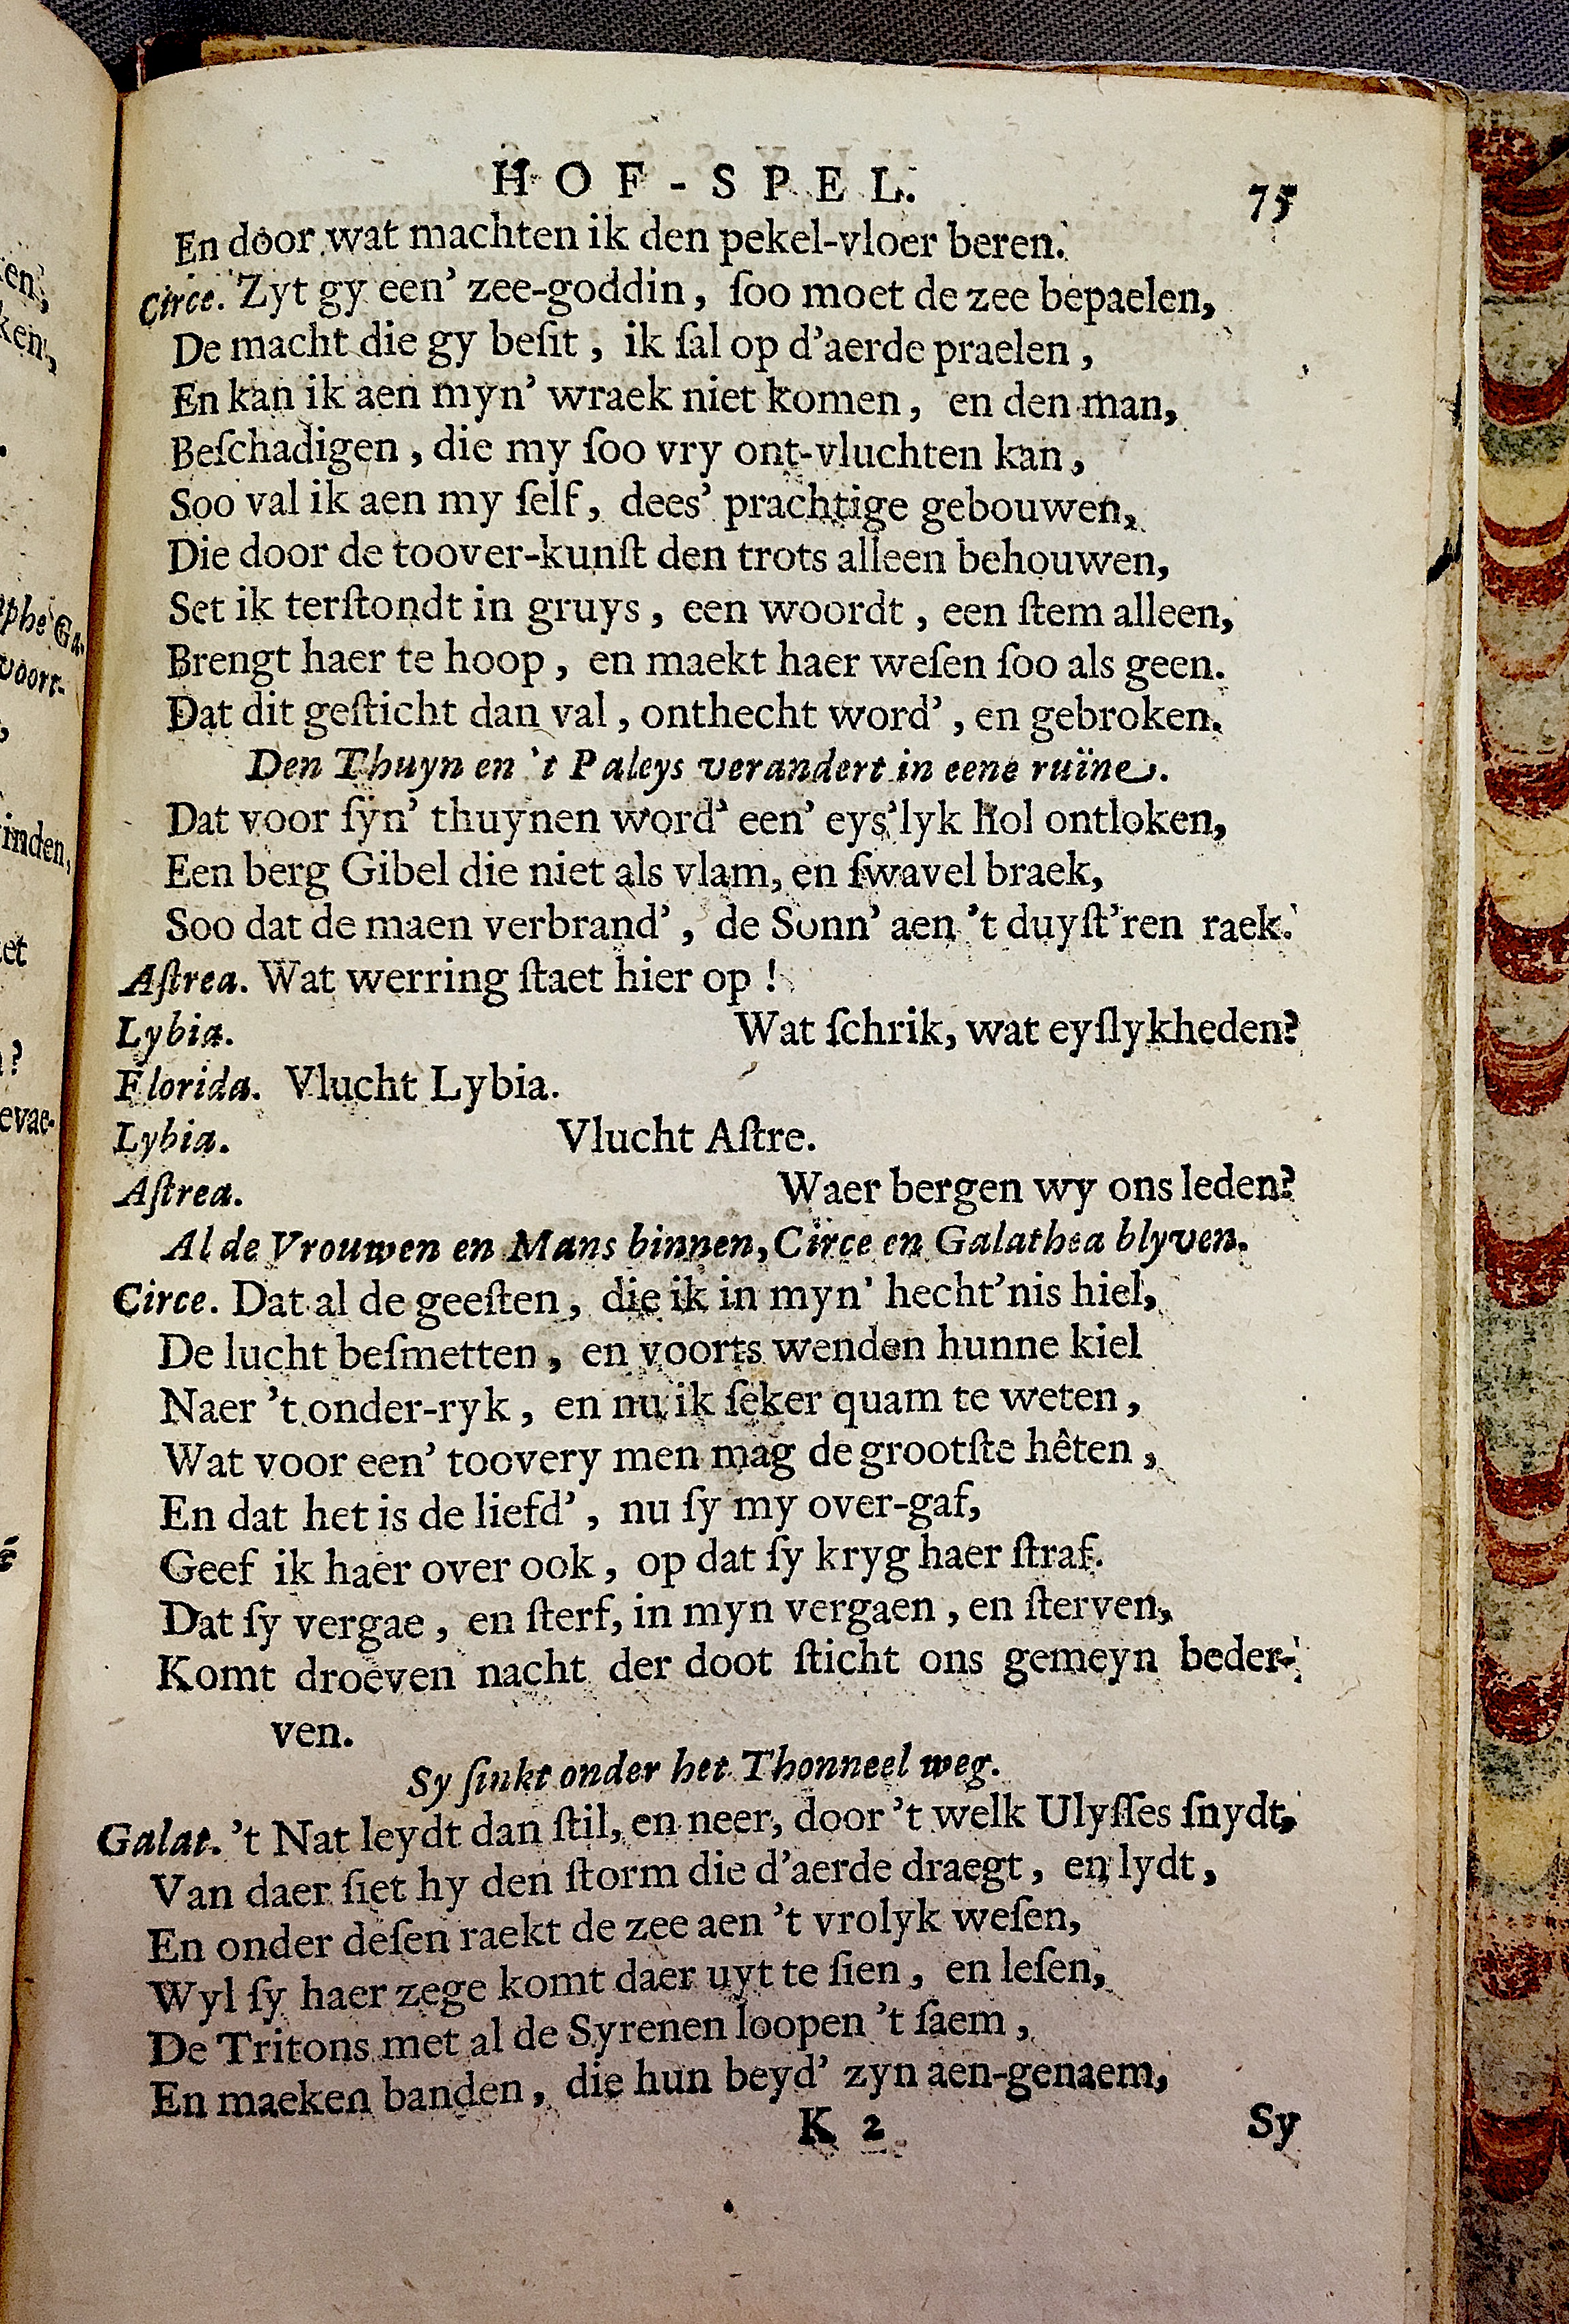 HOF-SPEL. 75
En door wat machten ik den pekel-vloer beren.
Circe. Zyt gy een' zee-goddin, ſoo moet de zee bepaelen,
De macht die gy beſit, ik ſal op d'aerde praelen,
En kan ik aen myn' wraek niet komen, en den man,
Beſchadigen, die my ſoo vry ont-vluchten kan,
Soo val ik aen my ſelf, dees' prachtige gebouwen,
Die door de toover-kunſt den trots alleen behouwen,
Set ik terſtondt in gruys, een woordt, een ſtem alleen,
Brengt haer te hoop, en maekt haer weſen ſoo als geen.
Dat dit geſticht dan val, onthecht word', en gebroken.
Den Thuyn en 't Paleys verandert in eene ruïne.
Dat voor ſyn' thuynen word' een' eys'lyk hol ontloken,
Een berg Gibel die niet als vlam, en ſwavel braek,
Soo dat de maen verbrand', de Sonn' aen 't duyſt'ren raek.
Aſtrea. Wat werring ſtaet hier op!
Lybia. Wat ſchrik, wat eyſlykheden?
Florida. Vlucht Lybia.
Lybia. Vlucht Aſtre.
Aſtrea. Waer bergen wy ons leden?
Al de Vrouwen en Mans binnen, Circe en Galathea blyven.
Circe. Dat al de geeſten, die ik in myn' hecht'nis hiel,
De lucht beſmetten, en voorts wenden hunne kiel
Naer 't onder-ryk, en nu ik ſeker quam te weten,
Wat voor een' toovery men mag de grootſte hêten,
En dat het is de liefd', nu ſy my over-gaf,
Geef ik haer over ook, op dat ſy kryg haer ſtraf.
Dat ſy vergae, en ſterf, in myn vergaen, en ſterven,
Komt droeven nacht der doot ſticht ons gemeyn beder-
ven.
Sy ſinkt onder het Thonneel weg.
Galat. 't Nat leydt dan ſtil, en neer, door 't welk Ulyſſes ſnydt,
Van daer ſiet hy den ſtorm die d'aerde draegt, en lydt,
En onder deſen raekt de zee aen 't vrolyk weſen,
Wyl ſy haer zege komt daer uyt te ſien, en leſen,
De Tritons met al de Syrenen loopen 't ſaem,
En maeken banden, die hun beyd' zyn aen-genaem,
K 2 Sy